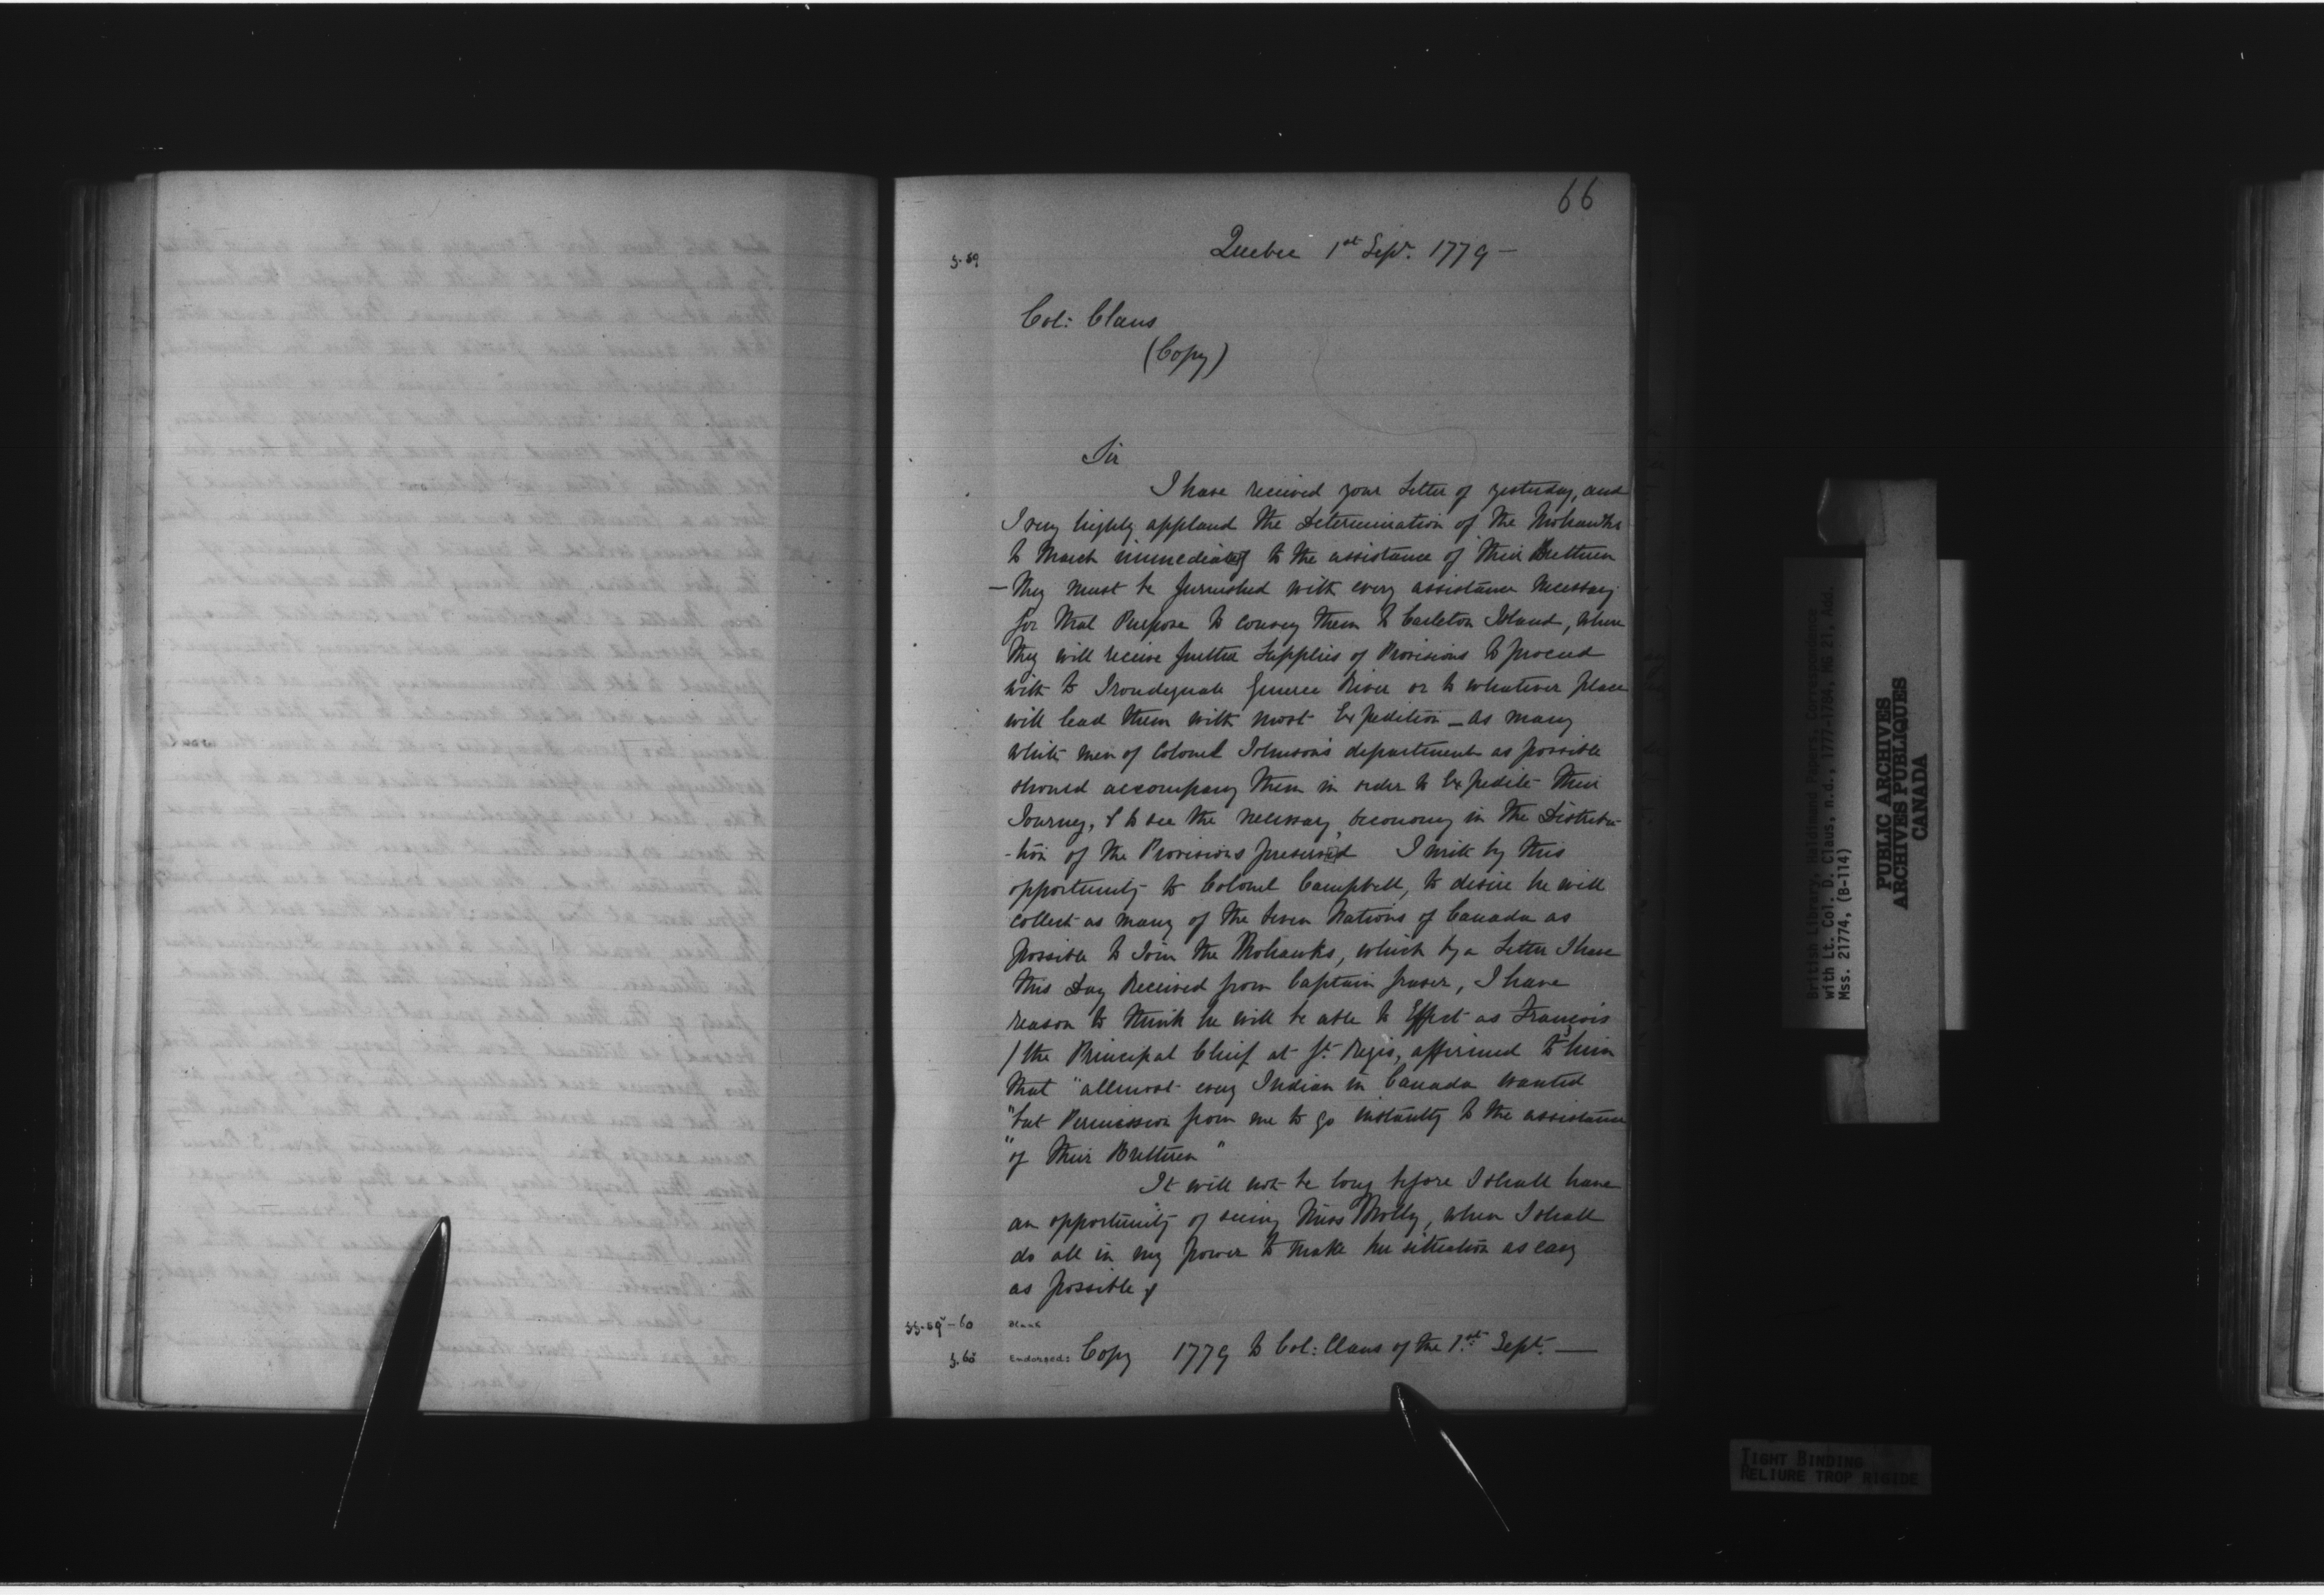 66
Quebec 1st Sepr. 1779 —
Col: Claus
(Copy)
Sir
I have received your Letter of yesterday, and
I very highly applaud the Determination of the Mohawks
to March immediately to the assistance of their Brethren
— They must be furnished with every assistance necessary
for that Purpose to convey them to Carleton Island, where
they will receive further Supplies of Provisions to proceed
with to Irondequate Genesee River or to whatever place
will lead them with most Expedition — as many
white men of Colonel Johnson's department as possible
should accompany them in order to Expedite their
Journey, & to see the necessary Oeconomy in the Distribu-
-tion of the Provisions preserved I write by this
opportunity to Colonel Campbell, to desire he will
collect as many of the Seven Nations of Canada as
possible to Join the Mohawks, which by a Letter I have
this Day Received from Captain fraser, I have
reason to think he will be able to Effect as Francois
/ the Principal Chief at St. Regis, affirmed to him
that "allmost every Indian in Canada wanted
"but Permission from me to go instantly to the assistance
"of their Brethren"
It will not be long before I shall have
an opportunity of seeing Miss Molly, when I shall
do all in my power to make her situation as easy
as possible
Blank
Endorsed: Copy 1779 to Col: Claus of the 1st Sept. —
British Library, Haldimand Papers, Correspondence
with Lt. Col. D. Claus, n.d., 1777-1784, MG 21, Add.
Mss. 21774, (B-114)
PUBLIC ARCHIVES
ARCHIVES PUBLIQUES
CANADA
TIGHT BINDING
RELIURE TROP RIGIDE